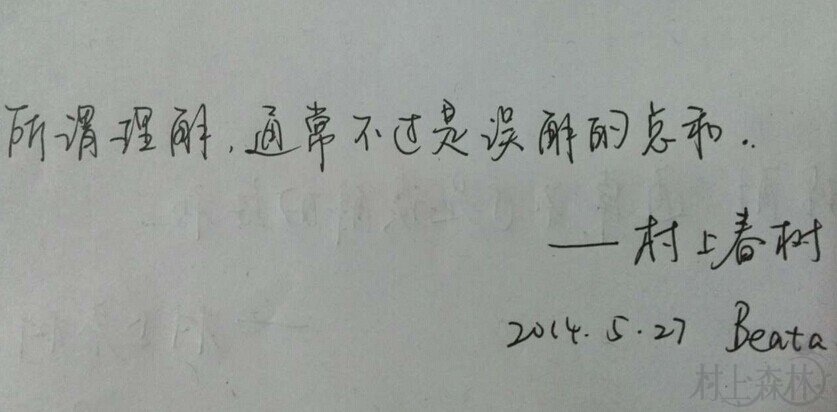 所谓理解,通常不过是误解的总和..
——村上春树
2014.5.27 Beata
村上森林